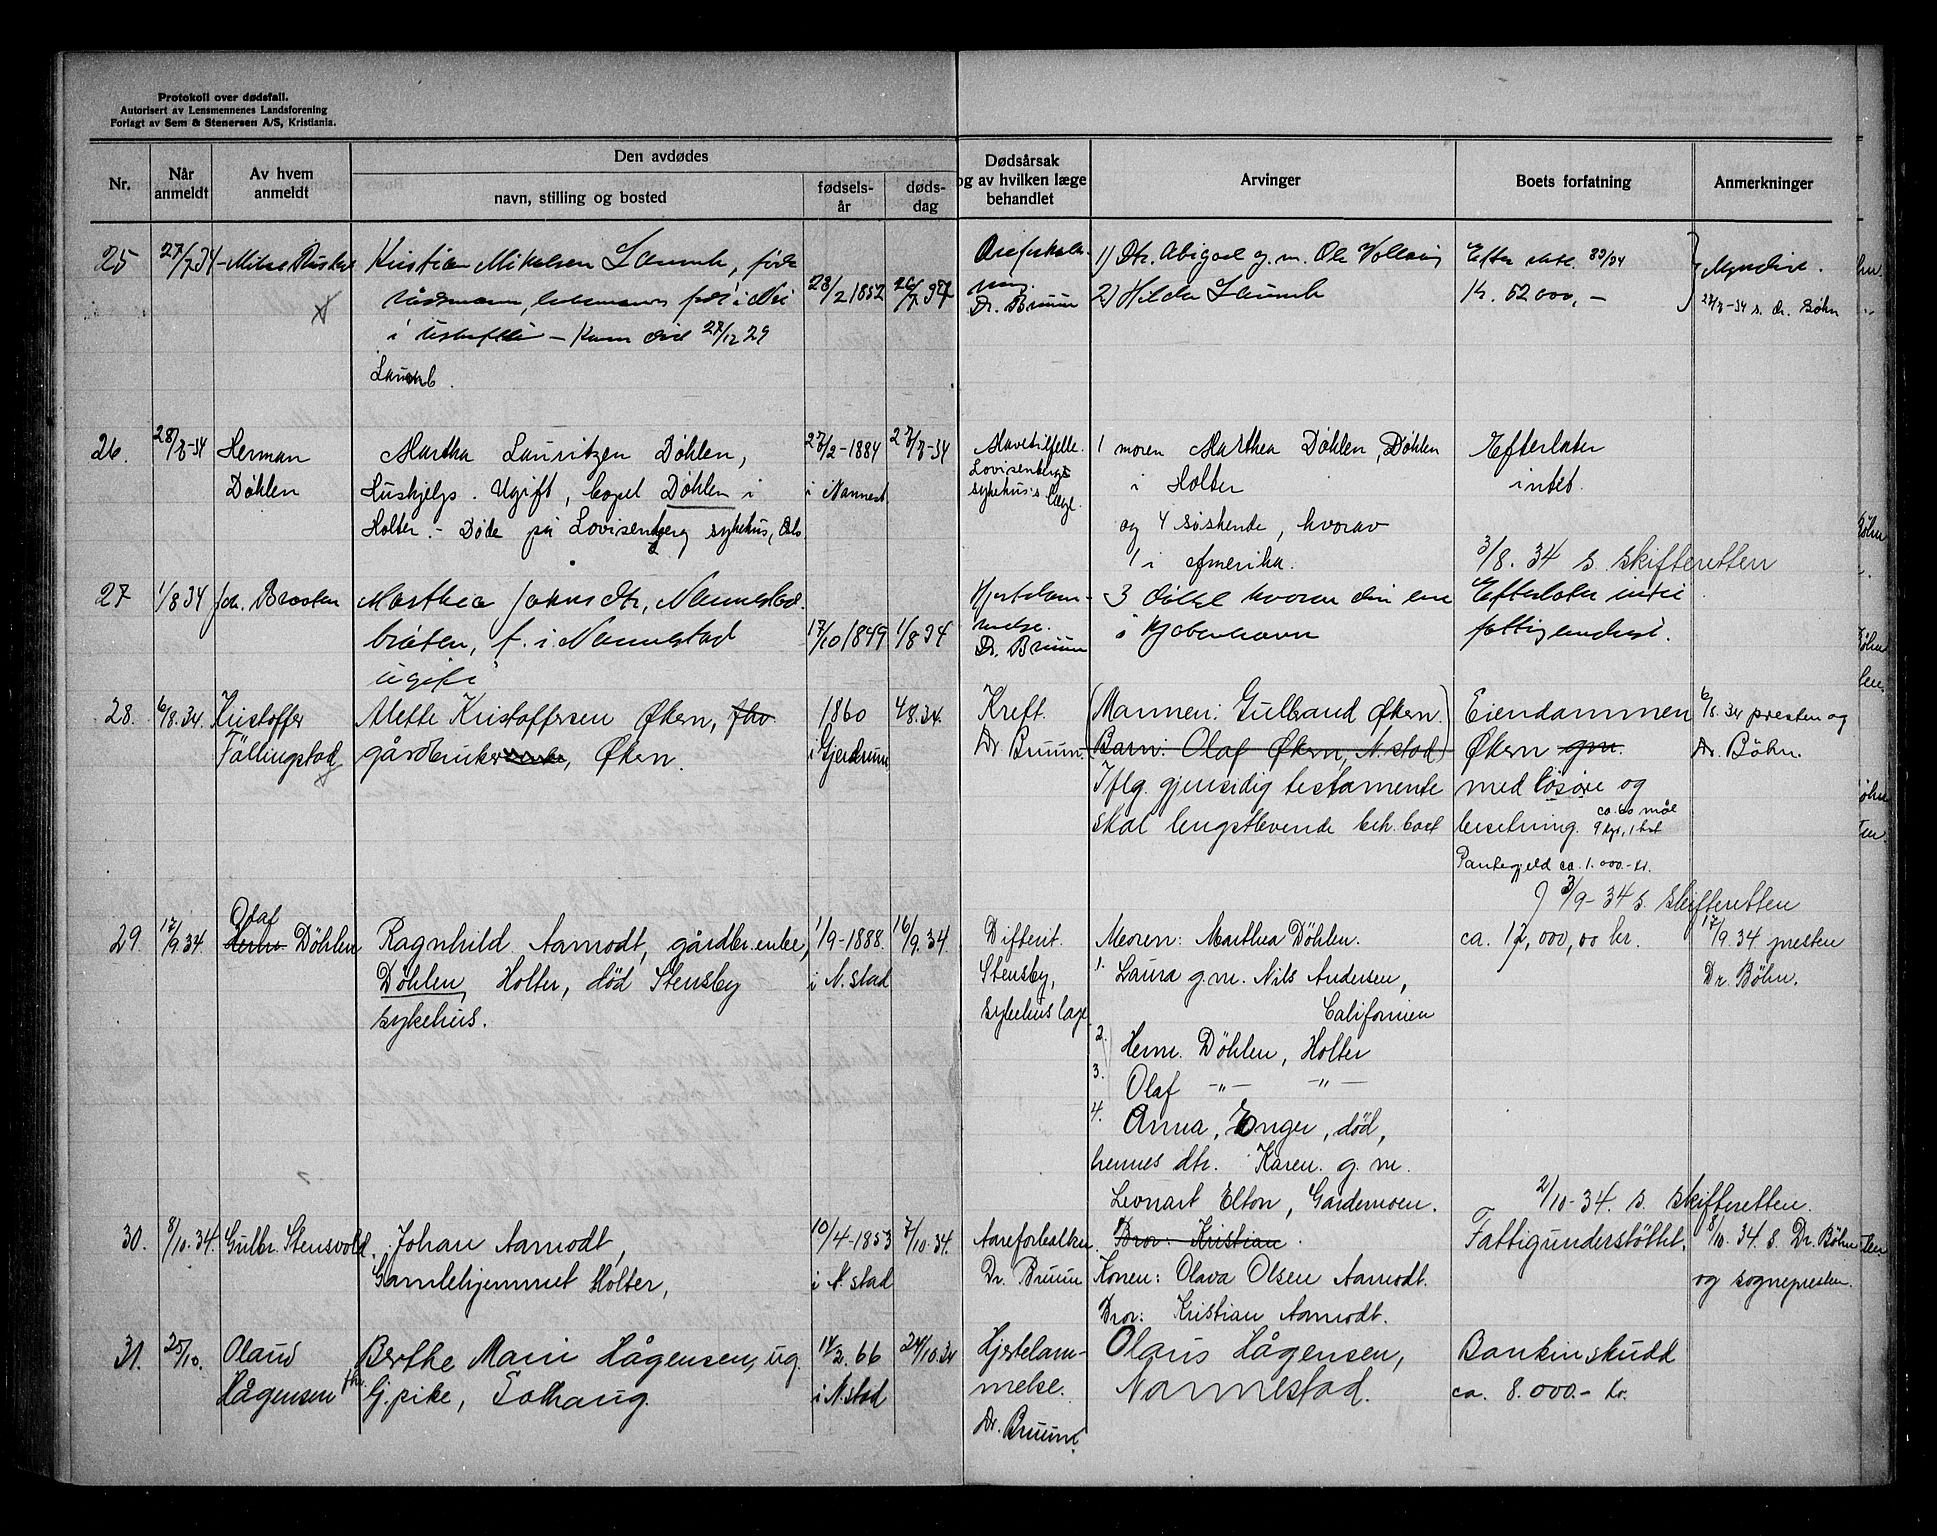 Protokoll over dødsfall.
Autorisert av Lensmennenes Landsforening
Forlagt av Sem & Stenersen A/S, Kristiania.
Nr.
Når anmeldt
Av hvem anmeldt
Den avdødes
navn, stilling og bosted
fødsels-år
døds-dag
Dødsårsak og av hvilken læge behandlet
Arvinger
Boets forfatning
Anmerkninger
25
27/7 34
Kristian Mikelsen Laumb, født
28/2 1852
i
27/12 29
Laumb.
Dr. Bruun
1) Dtr. Abigael g. m. Ole
2) Hilda Laumb
Kr. 52000,-
Myndige.
s. Dr. Bøhn
26.
28/7-34
Herman
Døhlen
Martha Lauritzen Døhlen,
Hushjelp. Ugift, bopel Døhlen i
Holter. - Døde på Lovisenberg sykehus, Oslo
27/2-1884
i Nannest
27/7-34
Mavetilfelle.
Lovisenbergs
sykehus's læge.
1 moren Marthea Døhlen, Døhlen
i Holter
og 4 søskende, hvorav
1 i Amerika.
Efterlater
intet.
3/8. 34 s. skifteretten
27
1/8 34
Joh. Braaten
Marthea Johnsdtr, Nannestad-
bråten, f. i Nannestad
ugift
17/10 1849
1/8 34
Hjertelam-
melse.
Dr. Bruun
3 søskende hvorav den ene
i Kjøbenhavn
Efterlater intet
fattigunderst.
28.
6/8. 34.
Kristoffer
Føllingstad
Alette Kristoffersen Økern, fhv
gårdbruker enke, Økern.
1860
i Gjerdrum
4/8. 34.
Kreft.
Dr. Bruun.
(Mannen: Gulbrand Økern.)
(Barn: Olaf Økern, N.stad)
Iflg. gjensidig testamente
skal lengstlevende beh. boet
Eiendommen
Økern gm.
med løsøre og
besetning. ca 60 mål
9 kyr, 1 hest
Pantegjeld ca. 1.000- kr.
3/9-34 s. skifteretten
6/8. 34 presten og
Dr. Bøhn.
29.
17/9. 34.
Olaf
Herm. Døhlen
Ragnhild Aamodt, gårdbr.enke,
Døhlen, Holter, død Stensby
sykehus.
1/9-1888.
i N.stad
16/9. 34.
Difterit.
Stensby,
sykehuslæge
Moren: Marthea Døhlen.
1. Laura g.m. Nils Andersen,
Californien
2. Herm. Døhlen, Holter
3. Olaf -"- -"-
4. Anna, Enger, død,
hennes dtr. Karen. g. m.
Leonart Elton, Gardermoen.
ca. 12,000,00 kr.
17/9. 34. presten
Dr. Bøhn.
2/10-34. s. skifteretten.
30.
8/10. 34.
Gulbr. Stensvold.
Johan Aamodt,
Gamlehjemmet Holter,
10/4-1853
i N.stad
7/10. 34.
Aareforkalkn.
Dr. Bruun
Bror: Kristian.
Konen: Olava Olsen Aamodt.
Bror: Kristian Aamodt.
Fattigunderstøttet.
8/10. 34. s. Dr. Bøhn
og sognepresten.
31.
25/10.
Olaus
Hågensen
Berthe Marie Hågensen, ug.
fhv. Gj.pike, Tothaug.
14/2. 66
i N.stad
24/10. 34
Hjertelam-
melse.
Dr. Bruun.
Olaus Hågensen,
Nannestad.
Bankinskudd
ca. 8.000.- kr.